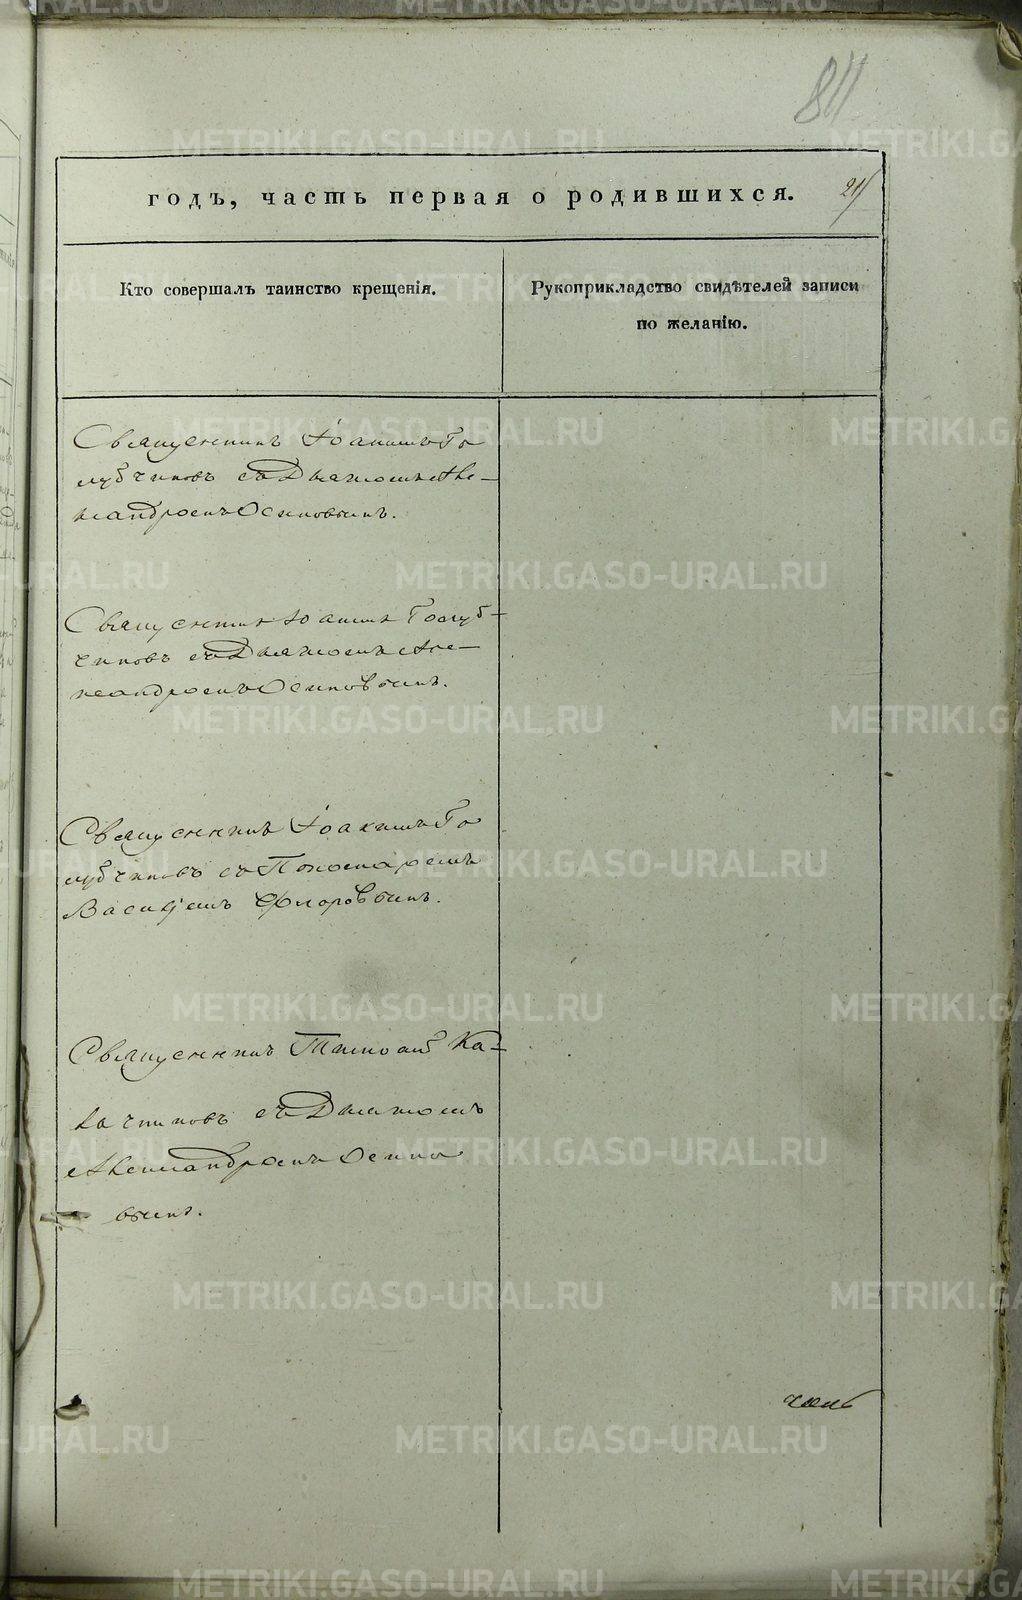 811
годъ, часть первая о родившихся.
21
Кто совершалъ таинство крещенія.
Рукоприкладство свидѣтелей записи
по желанію.
Священникъ Іоакимъ Го
лубчиковъ съ Дьякономъ Але-
ксандромъ Осиповымъ.
Священникъ Іоакимъ Голуб-
чиковъ съ Дьякономъ Але-
ксандромъ Осиповымъ.
Священникъ Іоакимъ Го
лубчиковъ съ Пономаремъ
Василіемъ Флоровымъ.
Священникъ Тимоѳей Ка-
лачниковъ съ Дьякономъ
Александромъ Осипо
вымъ.
METRIKI.GASO-URAL.RU